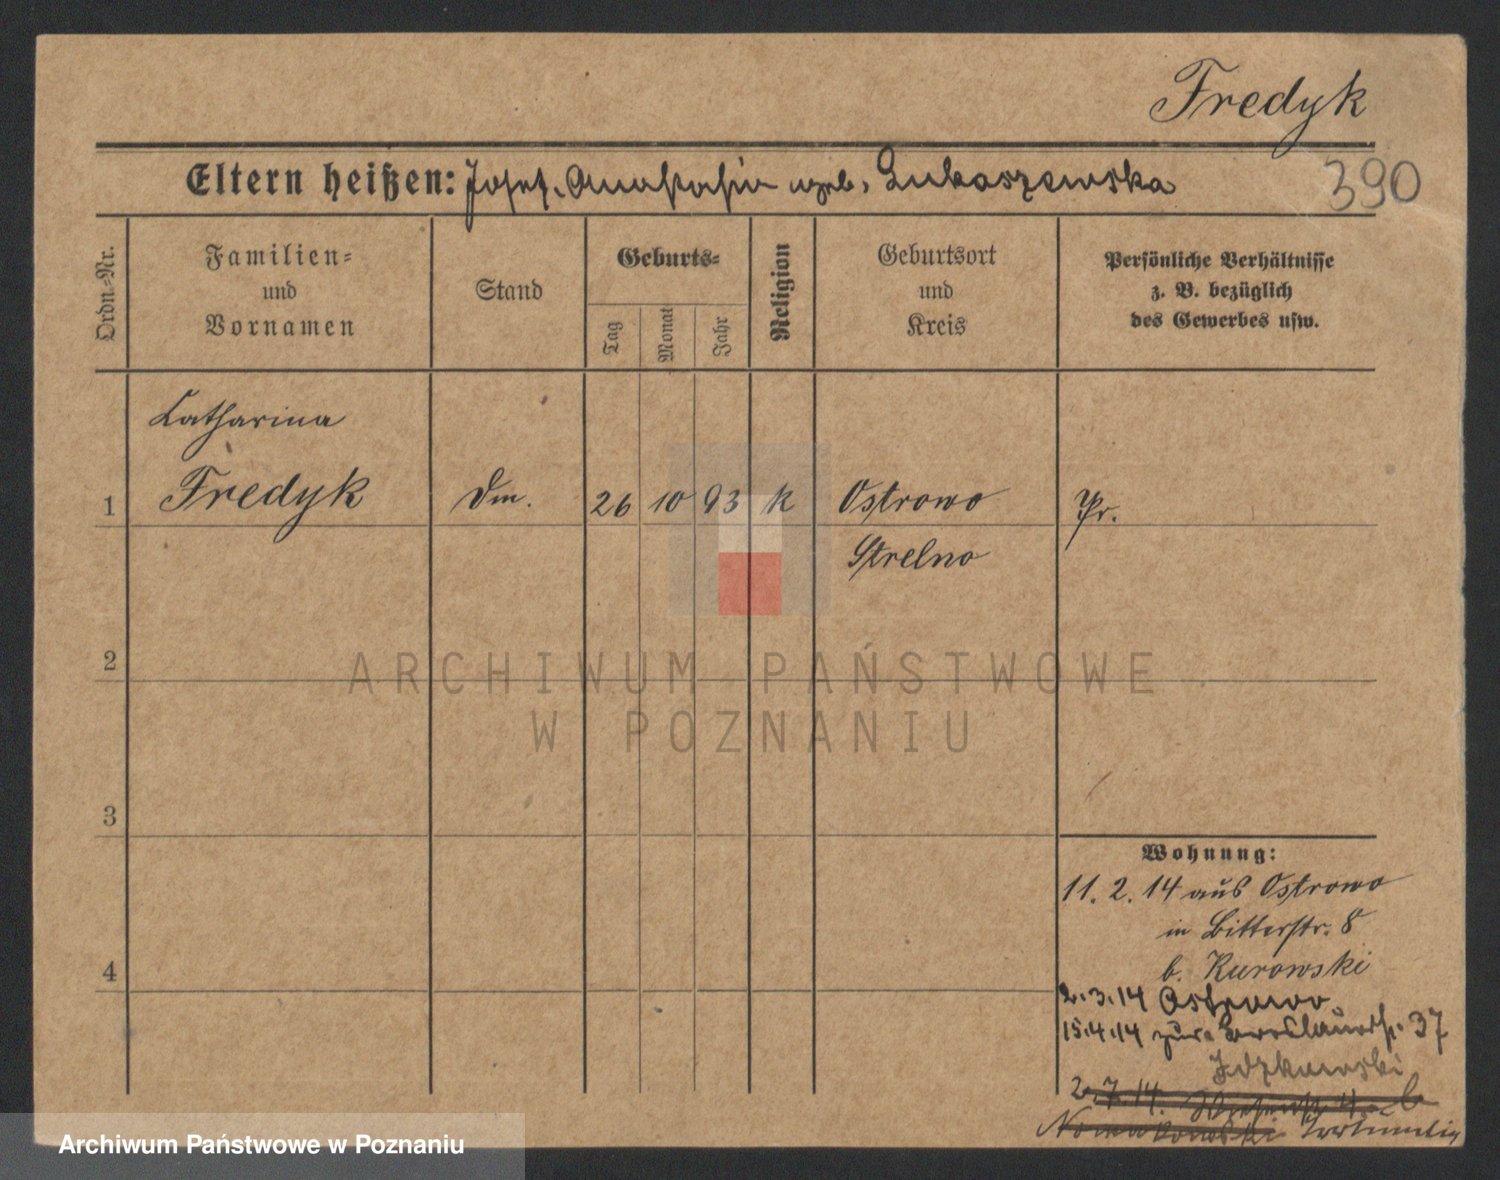 Fredyk
Eltern heißen: Josef. Anastasia geb. Lukaszewska
390
Ordn.-Nr.
Familien- und Vornamen
Stand
Geburts-
Tag
Monat
Jahr
Religion
Geburtsort und Kreis
Persönliche Verhältnisse
z. B. bezüglich
des Gewerbes usw.
Katharina
1 Fredyk Dm. 26 10 93 k Ostrowo Pr.
Strelno
2
3
4
Wohnung:
11. 2. 14 aus Ostrowo
in Bitterstr. 8
b. Kurowski
2.3.14 Ostrowo
15.4.14 zur. Breslauerstr. 37
Idzkowski
2.7.14.
ARCHIWUM PAŃSTWOWE
W POZNANIU
Archiwum Państwowe w Poznaniu